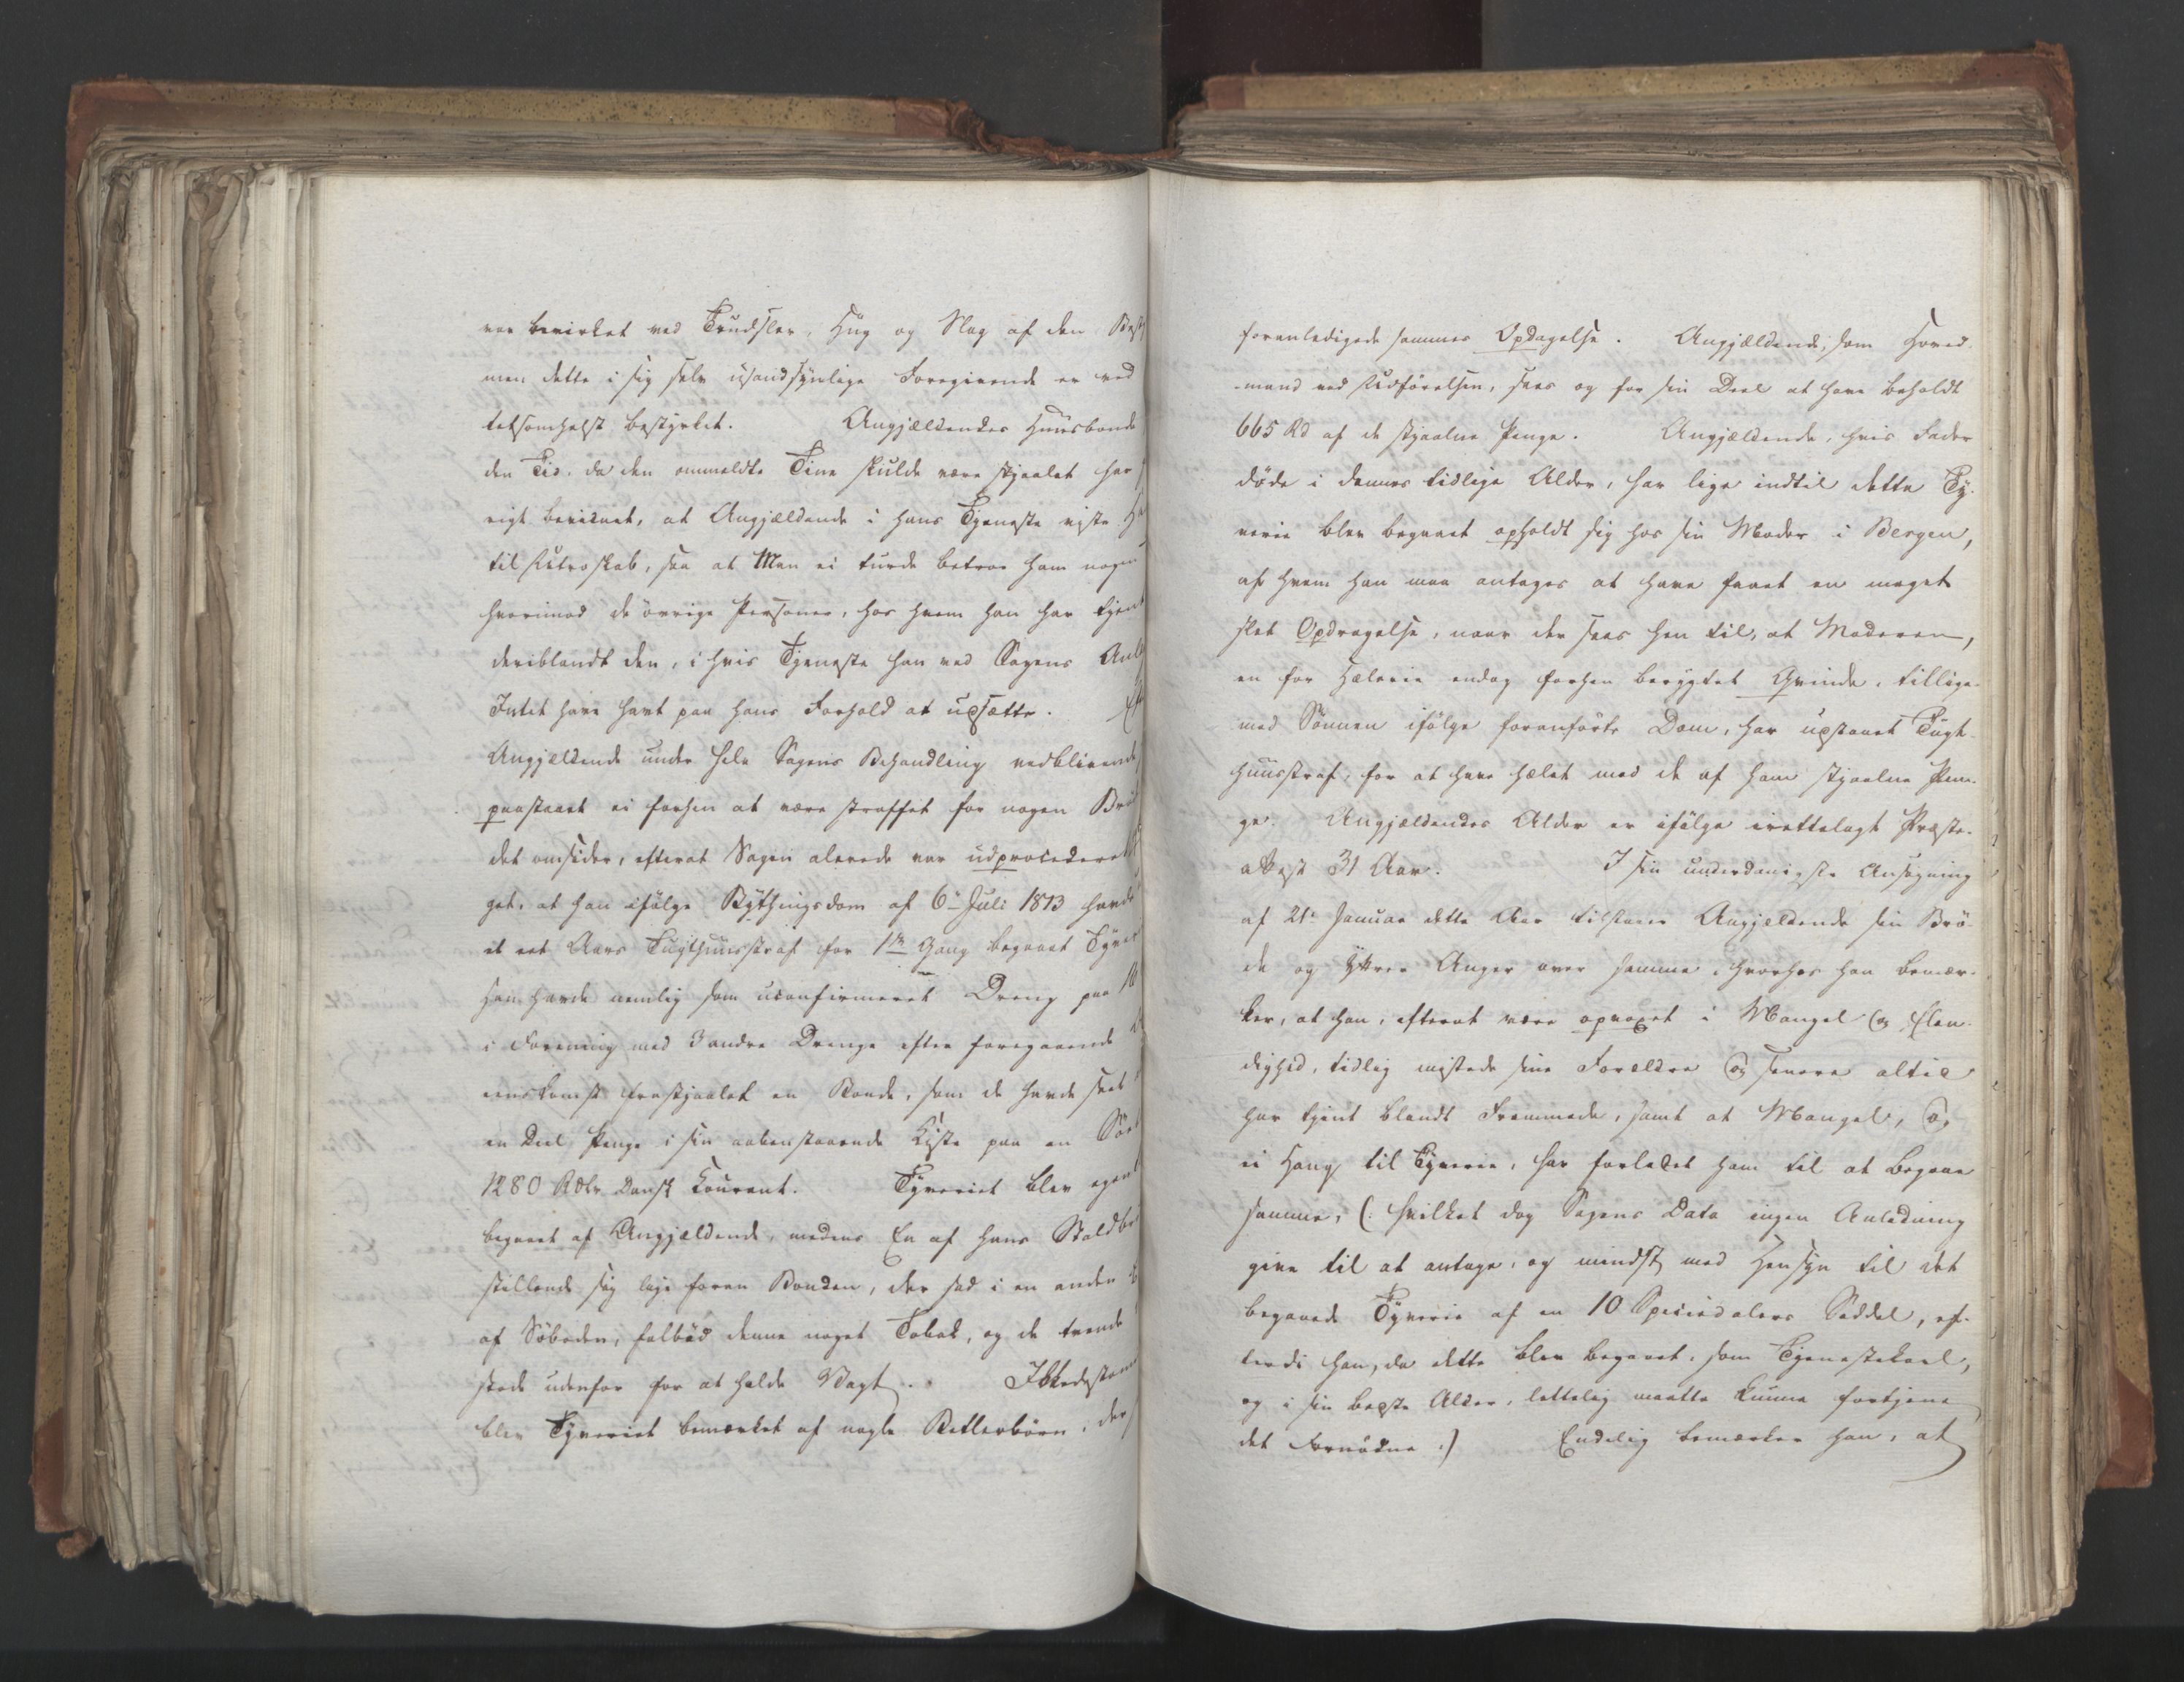 var bevirket ved Trudsler, Hug og Slag af den
men dette i sig selv usandsynlige Foregivende er ved
tetsomhelst bestyrket. Angjældendes Huusbonde
den Tid, da den ommeldte Tine skulde være stjaalet har
rigt bevidnet, at Angjældende i hans Tjeneste viste
til Utroskab, saa at Man ei turde betroe ham nogen
hvorimod de övrige Personer, hos hvem han har tjent
deriblandt den, i hvis Tjeneste han ved Sagens
Intet have havt paa hans Forhold at udsætte.
Angjældende under hele Sagens Behandling vedblivende
paastaaet ei forhen at være straffet for nogen
det omsider, efterat Sagen alerede var udprocederet
get, at han ifölge Bythingsdom af 6te Juli 1813 havde
it eet Aars Tugthuusstraf for 1ste Gang begaaet
Han havde nemlig som uconfirmeret Dreng paa
i Forening med 3 andre Drenge efter foregaaende
eenskomst frastjaalet en Bonde, som de havde seet
en Deel Penge i sin aabenstaaende Kiste paa en
1280 Rdlr Dansk Courant. Tyveriet blev
begaaet af Angjældende, medens En af hans
stillende sig lige foran Bonden, der sad i en anden
af Söboden, falböd denne noget Tobak, og de tvende
stode udenfor for at holde Vagt.
blev Tyveriet bemærket af nogle Betlerbörn, der
foranledigede sammes Opdagelse. Angjældende, som Hoved-
mand ved Udförelsen, saaes og for sin Deel at have beholdt
665 Rd af de stjaalne Penge. Angjældende, hvis Fader
döde i dennes tidlige Alder, har lige indtil dette Ty-
verie blev begaaet opholdt sig hos sin Moder i Bergen,
af hvem han maa antages at have faaet en meget
slet Opdragelse, naar der sees hen til, at Moderen,
en for Hælerie endog forhen berygtet Qvinde, tillige-
med Sönnen ifölge foranförte Dom, har udstaaet Tugt-
huusstraf, for at have hælet med de af ham stjaalne Pen-
ge. Angjældendes Alder er ifölge irettelagt Præste-
attest 31 Aar. I sin underdanigste Ansögning
af 21de Januar dette Aar tilstaaer Angjældende sin Brö-
de og yttrer Anger over samme, hvorhos han bemær-
ker, at han, efterat være opvoxet i Mangel og Elen-
dighed, tidlig mistede sine Forældre og senere altid
har tjent blandt Fremmede, samt at Mangel, og
ei Hang til Tyverie, har forledet ham til at begaae
samme, (: hvilket dog Sagens Data ingen Anledning
give til at antage, og mindst med Hensyn til det
begaaede Tyverie af en 10 Speciedalers Seddel, ef-
terdi han, da dette blev begaaet, som Tjenestekarl,
og i sin bedste Alder, lettelig maatte kunne fortjene
det Fornödne :) Endelig bemærker han, at